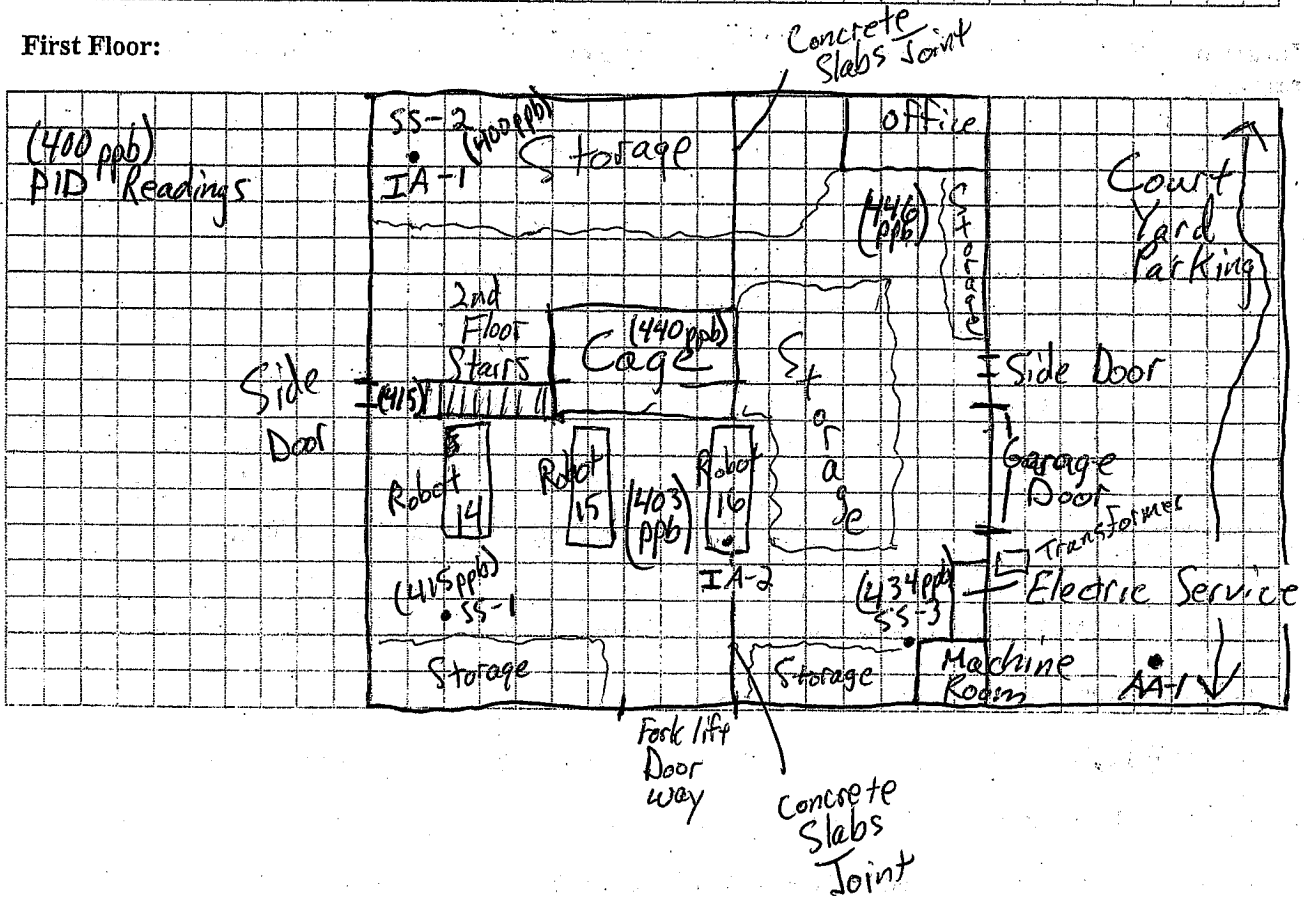 First Floor:
Concrete
Slabs Joint
(400 ppb)
PID Readings
SS-2
(400 ppb)
IA-1
Storage
Office
(446
ppb)
Storage
Court
Yard
Parking
2nd
Floor
Stairs
(440 ppb)
Cage
Storage
Side
Door
(415)
Side Door
Garage
Door
Robot
14
Robot
15
(403
ppb)
Robot
16
IA-2
Transformer
Electric Service
(415 ppb)
SS-1
(434 ppb)
SS-3
Storage
Storage
Machine
Room
AA-1
Fork lift
Door
way
Concrete
Slabs
Joint